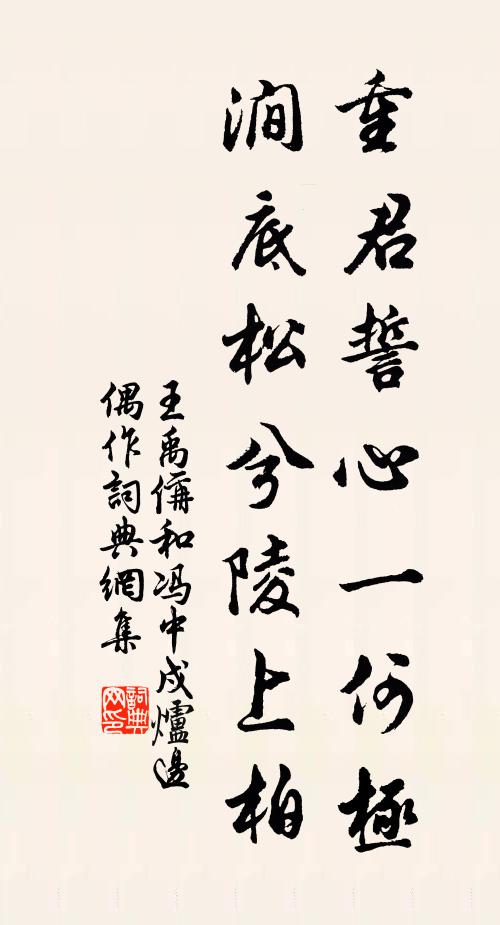 重君誓心一何極
澗底松兮陵上柏
王禹偁和冯中戍爐邊
偶作詞典網集
詞典网印